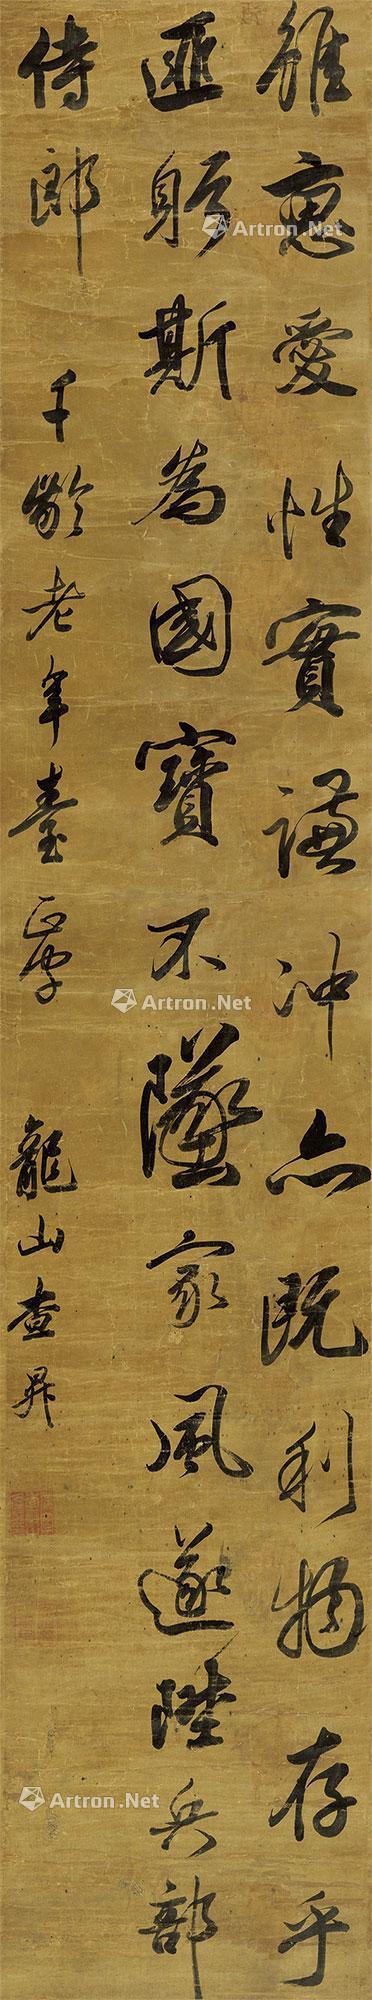 雖寬愛性實謙沖亦既利物存乎
匪躬斯為國寶不墜家風遂陞兵部
侍郎
千齡老年臺正字
龍山查昇
Artron.Net
Artron.Net
Artron.Net
Artron.Net